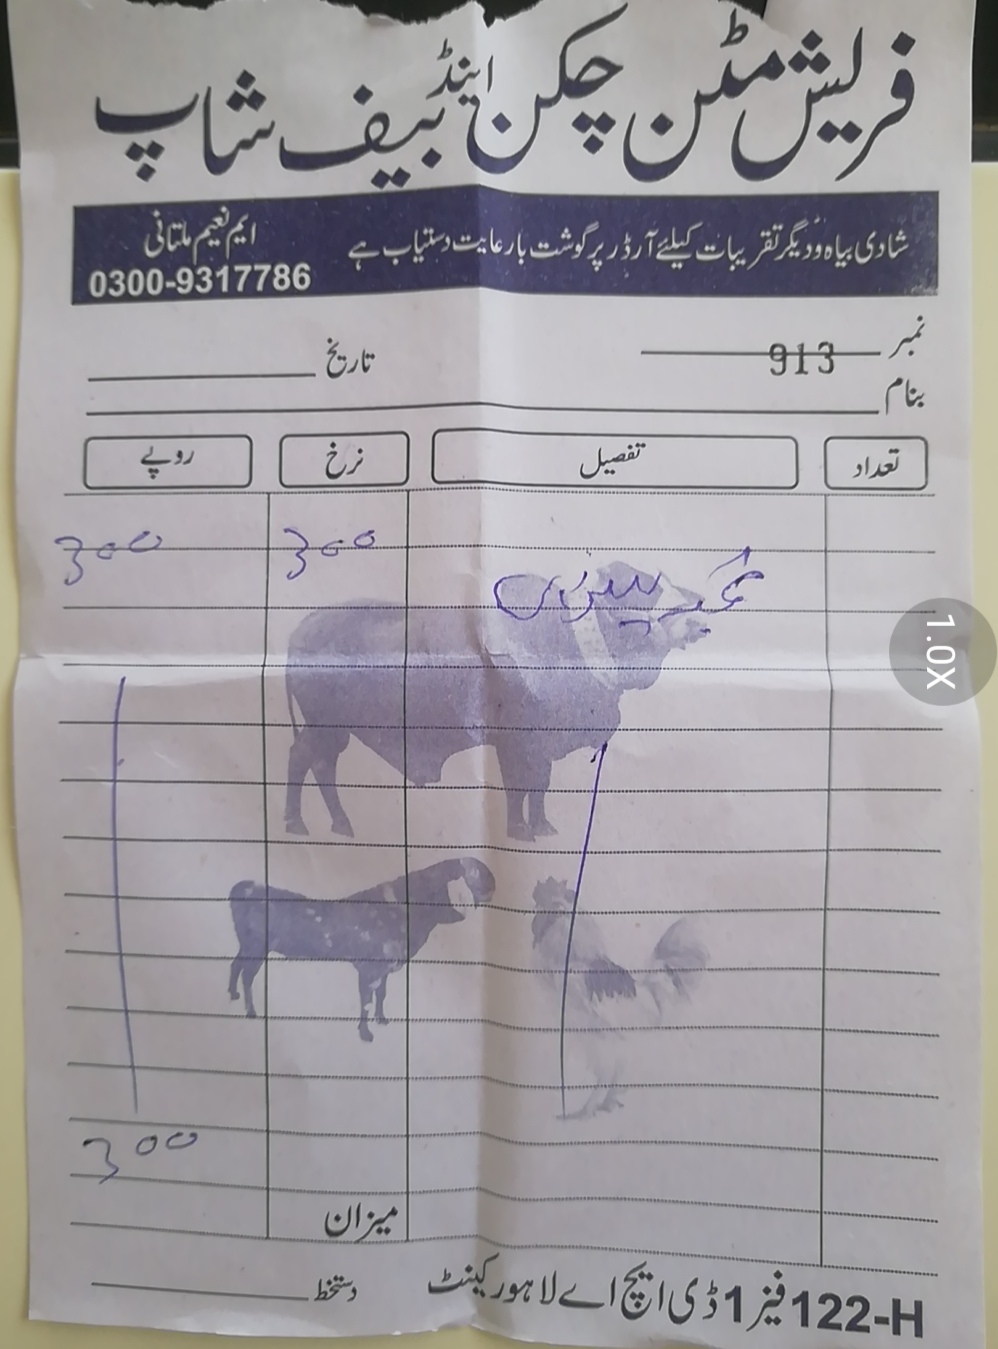 فریش مٹن چکن اینڈ بیف شاپ
شادی بیاہ ودیگر تقریبات کیلئے آرڈر پر گوشت بارعایت دستیاب ہے
ایم نعیم ملتانی
0300-9317786
نمبر 913
تاریخ
بنام
تعداد تفصیل نرخ روپے
300 300
300
میزان
122-H فیز 1 ڈی ایچ اے لاہور کینٹ
دستخط
1.0X